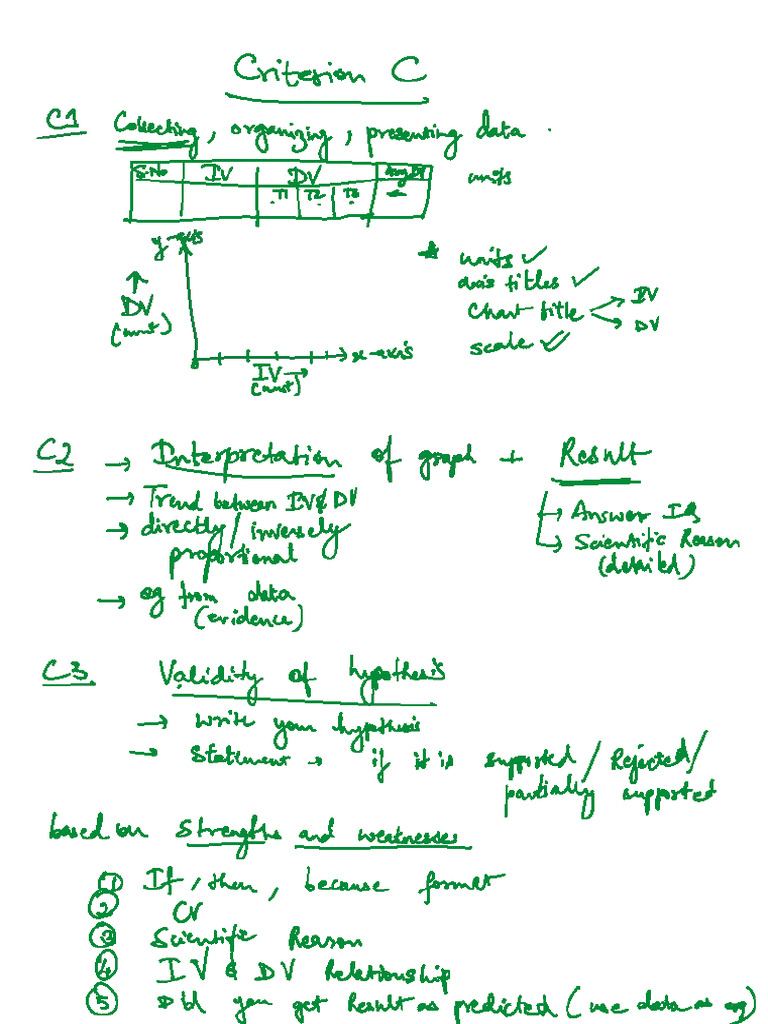 Criterion C
C1 Collecting, organizing, presenting data
S.No IV DV Avg DV units
T1 T2 T3
y-axis
DV
(unit)
IV → x-axis
(unit)
* units ✓
axis titles ✓
Chart title → IV
→ DV
scale ✓
C2 → Interpretation of graph + Result
→ Trend between IV & DV
→ directly / inversely
proportional
→ eg from data
(evidence)
→ Answer IQ
→ Scientific Reason
(detailed)
C3. Validity of hypothesis
→ write your hypothesis
→ Statement → if it is supported / Rejected /
partially supported
based on strengths and weaknesses
① If, then, because format
② or
③ Scientific Reason
④ IV & DV Relationship
⑤ Did you get Result as predicted (use data as eg)